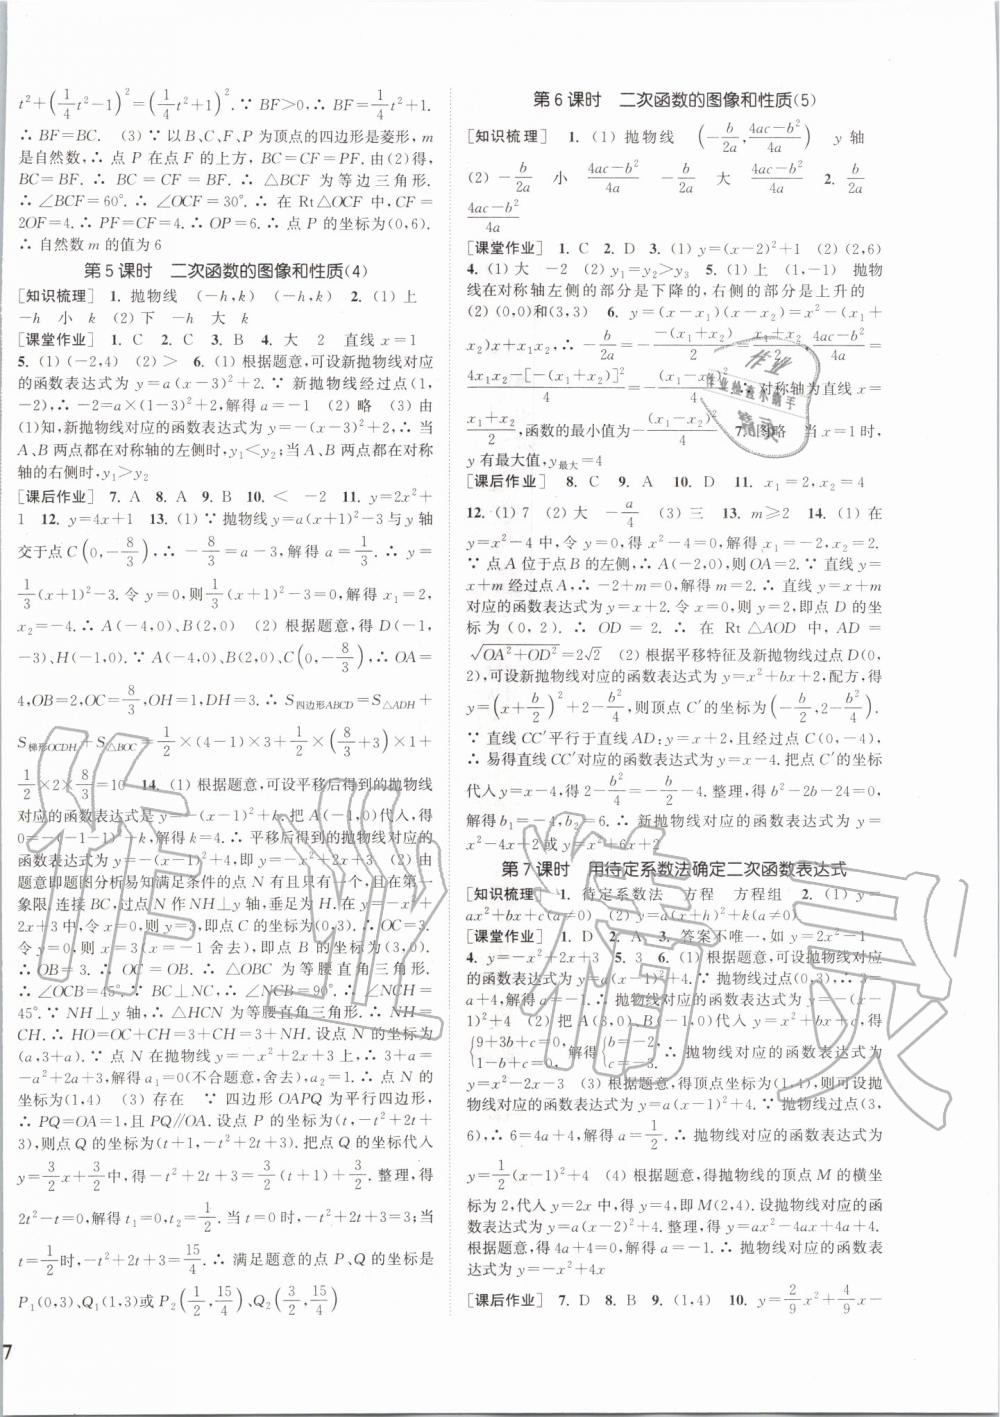 t²+(1/4t²-1)²=(1/4t²+1)².∵ BF>0,∴ BF=1/4t²+1.
∴ BF=BC. (3) ∵ 以 B、C、F、P 为顶点的四边形是菱形,m
是自然数,∴ 点 P 在点 F 的上方,BC=CF=PF.由(2)得,
BC=BF.∴ BC=CF=BF.∴ △BCF 为等边三角形.
∴ ∠BCF=60°.∴ ∠OCF=30°.∴ 在 Rt△OCF 中,CF=
2OF=4.∴ PF=CF=4.∴ OP=6.∴ 点 P 的坐标为(0,6).
∴ 自然数 m 的值为 6
第 5 课时 二次函数的图像和性质(4)
[知识梳理] 1. 抛物线 (-h,k) (-h,k) 2. (1) 上
-h 小 k (2) 下 -h 大 k
[课堂作业] 1. C 2. C 3. B 4. 大 2 直线 x=1
5. (1) (-2,4) (2) > 6. (1) 根据题意,可设新抛物线对应
的函数表达式为 y=a(x-3)²+2.∵ 新抛物线经过点(1,
-2),∴ -2=a×(1-3)²+2,解得 a=-1 (2) 略 (3) 由
(1)知,新抛物线对应的函数表达式为 y=-(x-3)²+2,∴ 当
A、B 两点都在对称轴的左侧时,y₁<y₂;当 A、B 两点都在对称
轴的右侧时,y₁>y₂
[课后作业] 7. A 8. A 9. B 10. < -2 11. y=2x²+
1 12. y=4x+1 13. (1) ∵ 抛物线 y=a(x+1)²-3 与 y 轴
交于点 C(0,-8/3),∴ -8/3=a(0+1)²-3,解得 a=1/3.∴ y=
1/3(x+1)²-3.令 y=0,则1/3(x+1)²-3=0,解得 x₁=2,
x₂=-4.∴ A(-4,0)、B(2,0) (2) 根据题意,得 D(-1,
-3)、H(-1,0).∵ A(-4,0)、B(2,0)、C(0,-8/3),∴ OA=
4,OB=2,OC=8/3,OH=1,DH=3.∴ S四边形ABCD=S△ADH+
S梯形OCDH+S△BOC=1/2×(4-1)×3+1/2×(8/3+3)×1+
1/2×2×8/3=10 14. (1) 根据题意,可设平移后得到的抛物线
对应的函数表达式是 y=-(x-1)²+k.把 A(-1,0)代入,得
0=-(-1-1)²+k,解得 k=4.∴ 平移后得到的抛物线对应的
函数表达式为 y=-(x-1)²+4,即 y=-x²+2x+3 (2) 由
题意即题图分析易知满足条件的点 N 有且只有一个,且在第一
象限.连接 BC,过点 N 作 NH⊥y 轴,垂足为 H.在 y=-x²+
2x+3 中,令 x=0,则 y=3,即点 C 的坐标为(0,3).∴ OC=3.
令 y=0,则 x=3(x=-1 舍去),即点 B 的坐标为(3,0).
∴ OB=3=OC.∵ ∠BOC=90°,∴ △OBC 为等腰直角三角形.
∴ ∠OCB=45°.∵ BC⊥NC,∴ ∠NCB=90°.∴ ∠NCH=
45°.∵ NH⊥y 轴,∴ △HCN 为等腰直角三角形.∴ NH=
CH.∴ HO=OC+CH=3+CH=3+NH.设点 N 的坐标为
(a,3+a).∵ 点 N 在抛物线 y=-x²+2x+3 上,∴ 3+a=
-a²+2a+3,解得 a₁=0(不合题意,舍去),a₂=1.∴ 点 N 的
坐标为(1,4) (3) 存在 ∵ 四边形 OAPQ 为平行四边形,
∴ PQ=OA=1,且 PQ∥OA.设点 P 的坐标为(t,-t²+2t+
3),则点 Q 的坐标为(t+1,-t²+2t+3).把点 Q 的坐标代入
y=3/2x+3/2中,得-t²+2t+3=3/2(t+1)+3/2.整理,得
2t²-t=0,解得 t₁=0,t₂=1/2.当 t=0 时,-t²+2t+3=3;当
t=1/2时,-t²+2t+3=15/4.∴ 满足题意的点 P、Q 的坐标是
P₁(0,3)、Q₁(1,3)或 P₂(1/2,15/4)、Q₂(3/2,15/4)
7
第 6 课时 二次函数的图像和性质(5)
[知识梳理] 1. (1) 抛物线 (-b/2a,(4ac-b²)/4a) y 轴
(2) -b/2a 小 (4ac-b²)/4a -b/2a 大 (4ac-b²)/4a 2. -b/2a
(4ac-b²)/4a
[课堂作业] 1. C 2. D 3. (1) y=(x-2)²+1 (2) (2,6)
4. (1) 大 -2 (2) y₁=y₂>y₃ 5. (1) y=(x-1)²-1 抛物
线在对称轴左侧的部分是下降的,右侧的部分是上升的
(2) (0,0)和(3,3) 6. y=(x-x₁)(x-x₂)=x²-(x₁+
x₂)x+x₁x₂,∴ -b/2a=-(-(x₁+x₂))/2=(x₁+x₂)/2,(4ac-b²)/4a=
(4x₁x₂-[-(x₁+x₂)]²)/4=-(x₁-x₂)²/4.∴ 对称轴为直线 x=
(x₁+x₂)/2,函数的最小值为-(x₁-x₂)²/4 7. 图略 当 x=1 时,
y 有最大值,y最大=4
[课后作业] 8. C 9. A 10. D 11. x₁=2,x₂=4
12. (1) 7 (2) 大 -a/4 (3) 三 13. m≥2 14. (1) 在
y=x²-4 中,令 y=0,得 x²-4=0,解得 x₁=-2,x₂=2.
∵ 点 A 位于点 B 的左侧,∴ A(-2,0),则 OA=2.∵ 直线 y=
x+m 经过点 A,∴ -2+m=0,解得 m=2.∴ 直线 y=x+m
对应的函数表达式为 y=x+2.令 x=0,则 y=2,即点 D 的坐
标为(0,2).∴ OD=2.∴ 在 Rt△AOD 中,AD=
√(OA²+OD²)=2√2 (2) 根据平移特征及新抛物线过点 D(0,
2),可设新抛物线对应的函数表达式为 y=x²+bx+2,配方,得
y=(x+b/2)²+2-b²/4,则顶点 C′的坐标为(-b/2,2-b²/4).
∵ 直线 CC′平行于直线 AD;又∵ 直线 CC′经过点 C(0,-4),
∴ 易得直线 CC′对应的函数表达式为 y=x-4.把点 C′的坐标
代入 y=x-4,得 2-b²/4=-b/2-4.整理,得 b²-2b-24=0,
解得 b₁=-4,b₂=6.∴ 新抛物线对应的函数表达式为 y=
x²-4x+2 或 y=x²+6x+2
第 7 课时 用待定系数法确定二次函数表达式
[知识梳理] 1. 待定系数法 方程 方程组 2. (1) y=
ax²+bx+c(a≠0) (2) y=a(x+h)²+k(a≠0)
[课堂作业] 1. D 2. A 3. 答案不唯一,如 y=2x²-1
4. y=-x²+2x+3 5. 3 6. (1) 根据题意,可设抛物线对应
的函数表达式为 y=a(x-1)²+4.∵ 抛物线过点(0,3),∴ 3=
a+4,解得 a=-1.∴ 抛物线对应的函数表达式为 y=-(x-
1)²+4 (2) 把 A(3,0)、B(-1,0)代入 y=x²+bx+c,得
{9+3b+c=0, 1-b+c=0, 解得{b=-2, c=-3. ∴ 抛物线对应的函数表达式为
y=x²-2x-3 (3) 根据题意,得顶点坐标为(1,4),则可设抛
物线对应的函数表达式为 y=a(x-1)²+4.∵ 抛物线过点(3,
6),∴ 6=4a+4,解得 a=1/2.∴ 抛物线对应的函数表达式为
y=1/2(x-1)²+4 (4) 根据题意,得抛物线的顶点 M 的横坐
标为 2,代入 y=2x 中,得 y=4,即 M(2,4).设抛物线对应的函
数表达式为 y=a(x-2)²+4.整理,得 y=ax²-4ax+4a+4.
根据题意,得 4a+4=0,解得 a=-1.∴ 抛物线对应的函数表
达式为 y=-x²+4x
[课后作业] 7. D 8. B 9. (1,4) 10. y=2/9x²+4/9x-
作业
作业检查小助手
精灵
作业精灵